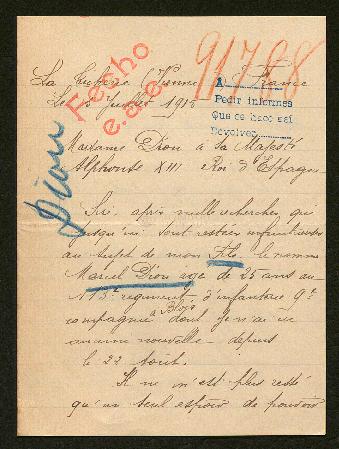 91788
Fecho
e.a.e.
La (Vienne) France
Le Juillet 1915
A
Pedir informes
Que se hace así
Devolver
Dion
Madame Dion à Sa Majesté
Alphonse XIII Roi d'Espagne
Siré, après mille recherches qui
jusqu'ici sont restées infructueuses
au sujet de mon Fils le nommé
Marcel Dion agé de 25 ans au
113e régiment d'infanterie 9e
compagnie à Blois dont je n'ai eu
aucune nouvelle depuis
le 22 Août.
Il ne m'est plus resté
qu'un seul espoir de pouvoir